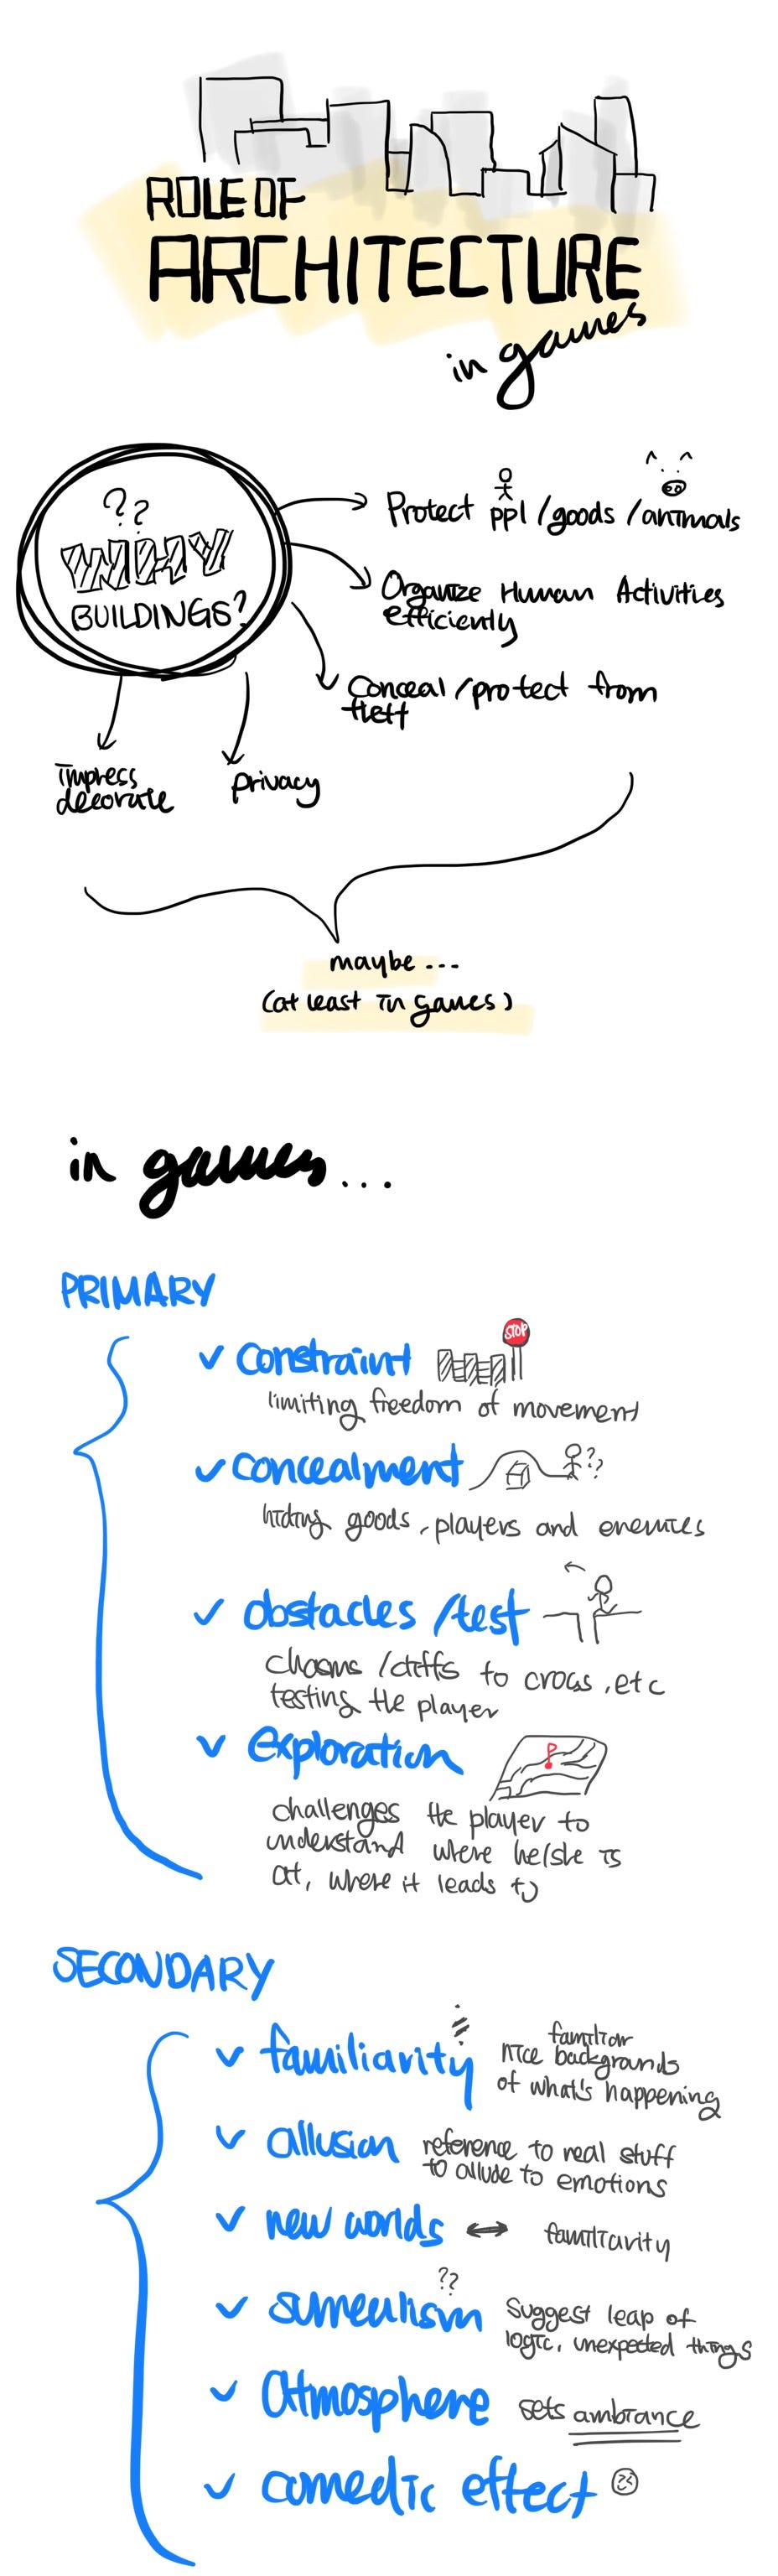 ROLE OF
ARCHITECTURE
in games
??
WHY
BUILDINGS?
Protect ppl/goods/animals
Organize Human Activities
efficiently
Conceal/protect from
theft
impress
decorate
privacy
maybe...
(at least in games)
in games...
PRIMARY
constraint
STOP
limiting freedom of movement
concealment
??
hiding goods, players and enemies
obstacles/test
chasms/cliffs to cross, etc
testing the player
exploration
challenges the player to
understand where he/she is
at, where it leads to
SECONDARY
familiarity
familiar
nice backgrounds
of what's happening
allusion
reference to real stuff
to allude to emotions
new worlds ↔ familiarity
??
surrealism
suggest leap of
logic, unexpected things
Atmosphere
sets ambiance
comedic effect